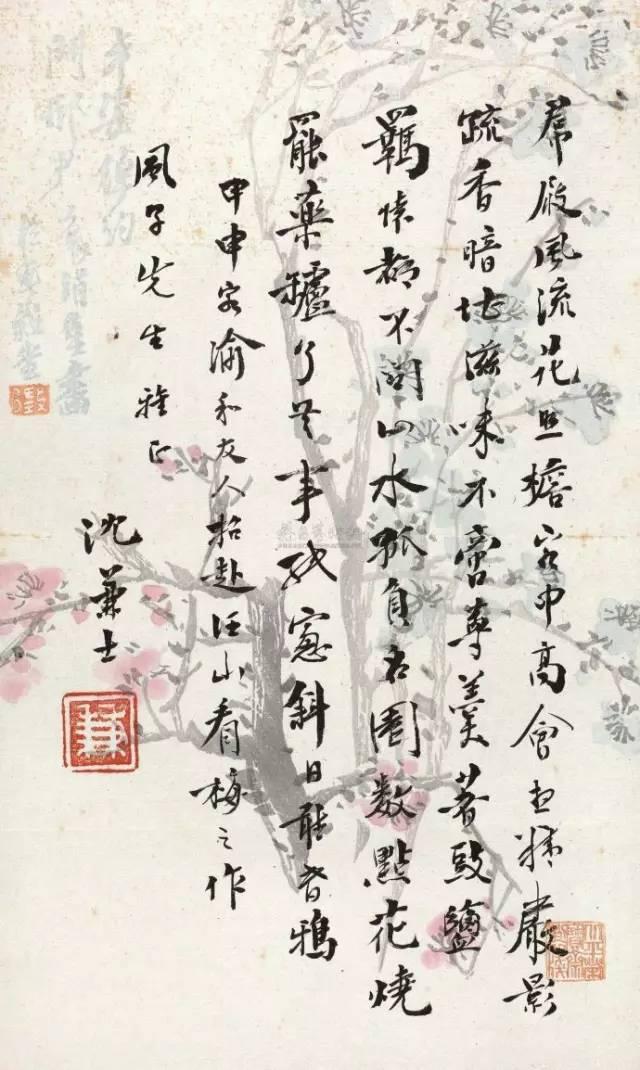 帬屐風流花照檐客中高會也精嚴影
疏香暗堪滋味不啻蓴羹著豉鹽
羈懷都不關山水孤負名園數點花燒
罷藥罏了無事紙窗斜日聽昏鴉
甲申客渝和友人招赴汪山看梅之作
風子先生雅正
沈兼士